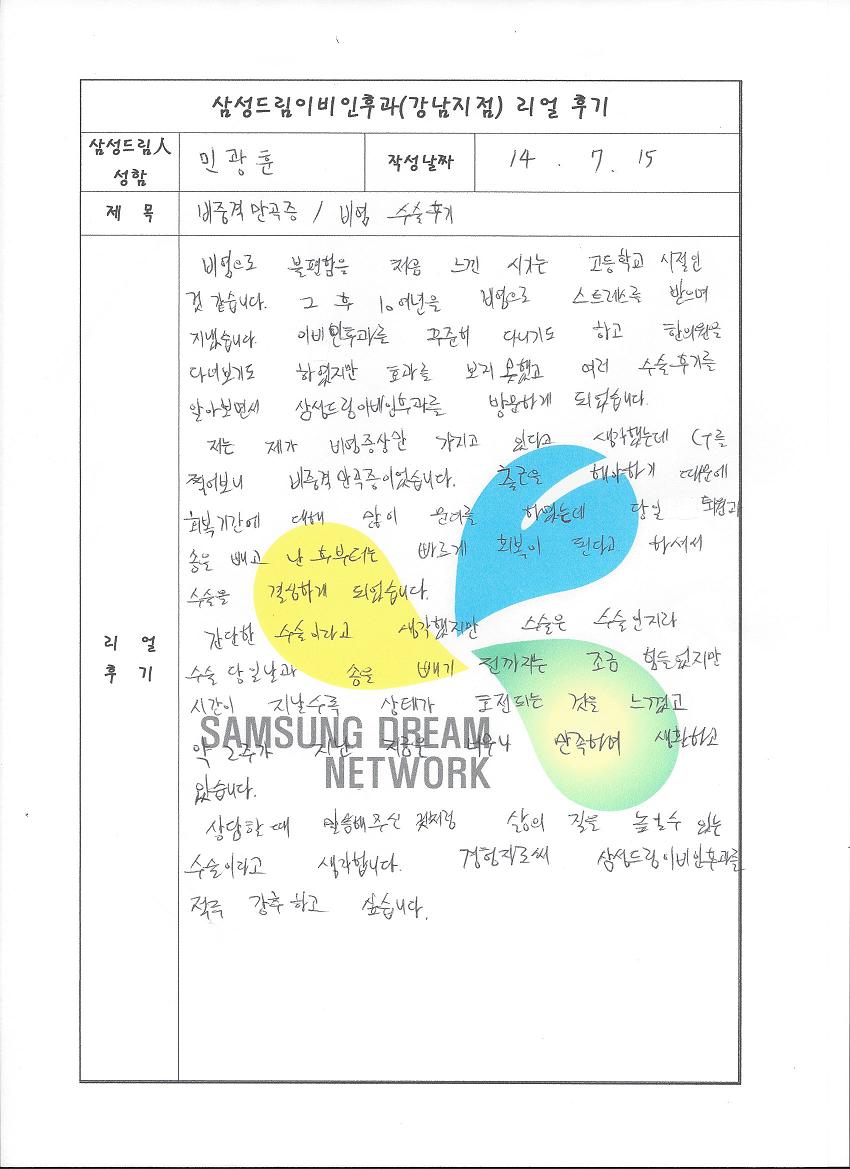 삼성드림이비인후과(강남지점) 리얼 후기
삼성드림人
성함
민광훈
작성날짜
14 . 7. 15
제 목
비중격만곡증 / 비염 수술후기
리 얼
후 기
비염으로 불편함을 처음 느낀 시기는 고등학교 시절인
것 같습니다. 그 후 10여년을 비염으로 스트레스를 받으며
지냈습니다. 이비인후과를 꾸준히 다니기도 하고 한의원을
다녀보기도 하였지만 효과를 보지 못했고 여러 수술후기를
알아보면서 삼성드림이비인후과를 방문하게 되었습니다.
저는 제가 비염증상만 가지고 있다고 생각했는데 CT를
찍어보니 비중격만곡증이었습니다. 출근을 해야하기 때문에
회복기간에 대해 많이 염려를 하였는데 당일 퇴원과
솜을 빼고 난 후부터는 빠르게 회복이 된다고 하셔서
수술을 결심하게 되었습니다.
간단한 수술이라고 생각했지만 수술은 수술인지라
수술 당일날과 솜을 빼기 전까지는 조금 힘들었지만
시간이 지날수록 상태가 호전되는 것을 느꼈고
약 2주가 지난 지금은 너무나 만족하며 생활하고
있습니다.
상담할 때 말씀해주신 것처럼 삶의 질을 높일수 있는
수술이라고 생각합니다. 경험자로써 삼성드림이비인후과를
적극 강추 하고 싶습니다.
SAMSUNG DREAM
NETWORK